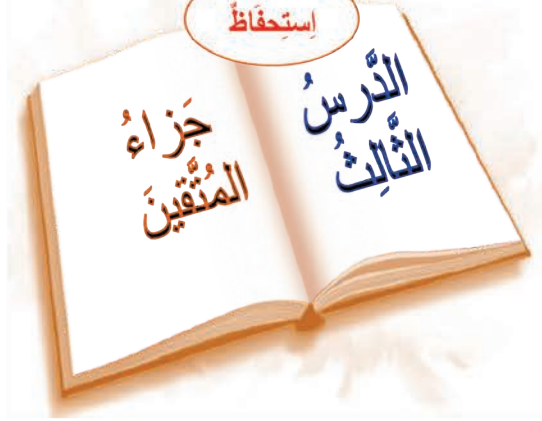 اِستِحفَاظٌ
الدَّرسُ
الثَّالِثُ
جَزاءُ
المُتَّقينَ